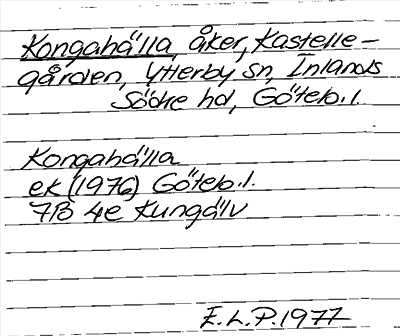 Kongahälla, åker, Kastelle-
gården, Ytterby sn, Inlands
Södre hd, Göteb. l.
Kongahälla
ek (1976) Göteb. l.
7B 4e Kungälv
E.L.P. 1977